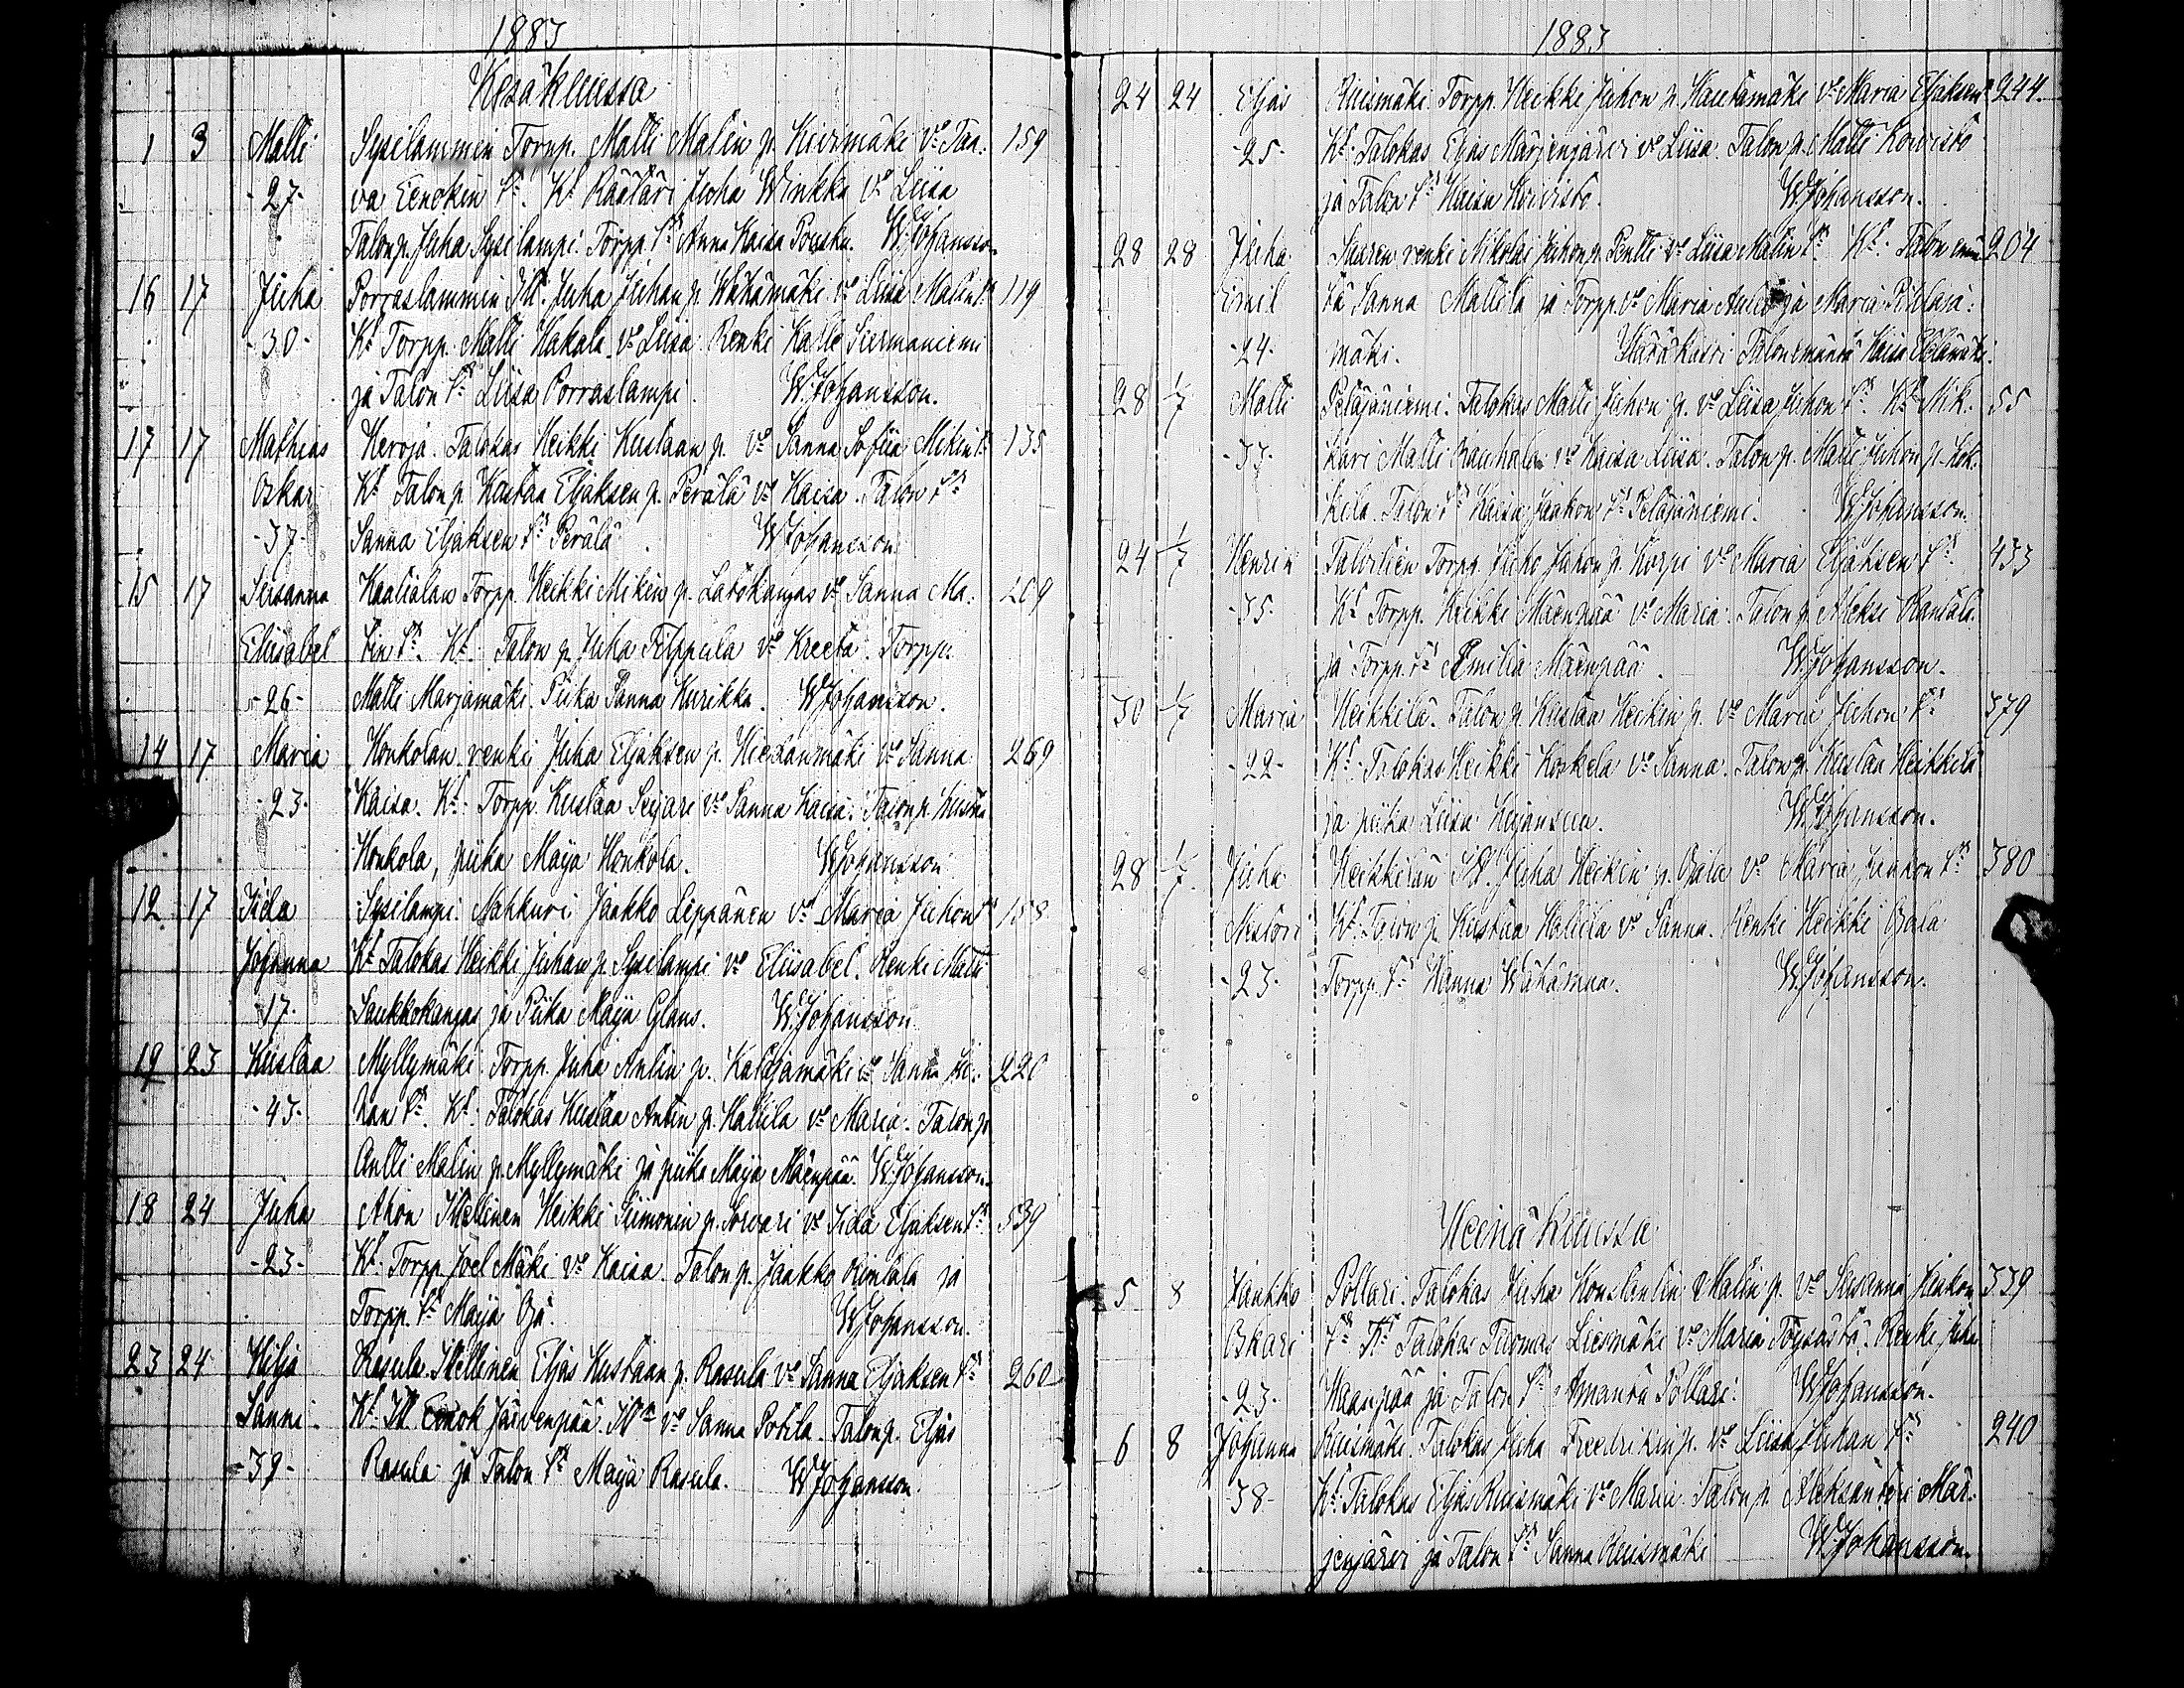 1883
Kesäkuussa
1 3 Matti Sysilammin Torpp. Matti Matin p. Kiirimäki vo Taa: 159
-27- va Eenokin tr. Kt Räätäri Juha Winkka vo Liisa
Talon p. Juha Sysilampi. Torpp. tr Anna Kaisa Pouska. W.Johansson
16 17 Juha Porraslammin Itll. Juha Juhan p. Wähämäki vo Liisa Matin tr 119
-30- Kt Torpp. Matti Hakala vo Liisa. Renki Kalle Siermaniemi
ja Talon tr Liisa Porraslampi. W.Johansson.
17 17 Mathias Keroja. Talokas Heikki Kustaan p. vo Sanna Sofiia Mikin tr 135
Oskar Kt Talon p. Kustaa Eljaksen p. Perälä vo Kaisa. Talon tr
-37- Sanna Eljaksen tr Perälä. W.Johansson
15 17 Susanna Kaalialan Torpp. Heikki Mikin p. Latokangas vo Sanna Ma: 209
Eliisabet tin tr. Kt. Talon p. Juha Filppula vo Kreeta. Torpp.
-26- Matti Marjamäki. Piika Sanna Kurikka. W.Johansson.
14 17 Maria Honkolan renki Juha Eljaksen p. Hietanmäki vo Sanna 269
-23- Kaisa. Kt. Torpp. Kustaa Seijari vo Sanna Kaisa. Talon p. Kustaa
Honkola, piika Maija Honkola. W.Johansson
12 17 Iida Sysilampi. Nahkuri Jaakko Leppänen vo Maria Juhon tr 158
Johanna Kt Talokas Heikki Juhan p. Sysilampi vo Eliisabet. Renki Matti
-17- Saukkokangas ja Piika Maija Glans. W.Johansson
19 23 Kustaa Myllymäki. Torpp. Juha Antin p. Kalajamäki vo Sanna Ju: 220
-43- han tr. Kt. Talokas Kustaa Antin p. Hallila vo Maria. Talon p.
Antti Matin p. Myllymäki ja piika Maija Mäenpää. W.Johansson.
18 24 Juha Ahon Itsellinen Heikki Siimonin p. Sorvari vo Iida Eljaksen tr 539
-23- Kt. Torpp. Joel Mäki vo Kaisa. Talon p. Jaakko Rintala ja
Torpp. tr Maija Oja. W.Johansson.
23 24 Hilja Rasula. Itsellinen Eljas Kustaan p. Rasula vo Sanna Eljaksen tr 260
Sanni. Kt Itll Eenok Järvenpää. Itll vo Sanna Potila. Talon p. Eljas
-39- Rasula ja Talon tr Maija Rasula. W.Johansson.
1883
24 24 Eljas Ruismäki Torpp. Heikki Juhon p. Hautamäki vo Maria Eljaksen tr 244.
-25- Kt. Talokas Eljas Marjenjärvi vo Liisa. Talon p. Matti Koivisto
ja Talon tr Kaisa Koivisto. W.Johansson.
28 28 Juha Suuren renki Nikolai Juhon p. Pentti vo Liisa Matin tr Kt. Talon emän 204
Emil tä Sanna Mattila ja Torpp. vo Maria ja Maria Pihlaja:
-24- mäki. Hätäkasti Talonemäntä Kaisa
28 1/7 Matti Peläjäniemi. Talokas Matti Juhon p. vo Liisa Juhon tr. Kt. Nik: 55
-33- kari Matti Rauhala vo Kaisa Liisa. Talon p. Matti Juhon p. Kok:
kila. Talon tr Kaisa Jaakon tr Peläjäniemi. W.Johansson.
24 1/7 Henrik Talvitien Torpp. Juho Juhon p. Korpi vo Maria Eljaksen tr 433
-35- Kt Torpp. Heikki Mäenpää vo Maria. Talon p. Aleksi Rantala
ja Torpp. tr Emilia Mäenpää. W.Johansson.
30 1/7 Maria Heikkilä. Talon p. Kustaa Heikin p. vo Maria Juhon tr 379
-22- Kt. Talokas Heikki Koskela vo Sanna. Talon p. Kustaa Heikkilä
ja piika Liisa Keijansuu. W.Johansson.
28 1/7 Juha Heikkilän Itll. Juha Heikin p. Ojala vo Maria Jaakon tr 380
Nestori Kt Talon p. Kustaa Hallila vo Sanna. Renki Heikki Ojala
-23- Torpp. tr Hanna Wähämaa. W.Johansson.
Heinäkuussa
5 8 Jaakko Pollari. Talokas Juha Konstantin Matin p. vo Susanna Jaakon 339
Oskari tr Kt Talokas Tuomas Liesmäki vo Maria Töysästä. Renki Juha
-23- Haanpää ja Talon tr Amanda Pollari. W.Johansson.
6 8 Johanna Ruismäki. Talokas Juha Freedrikin p. vo Liisa Juhan tr 240
-38- Kt. Talokas Eljas Ruismäki vo Maria. Talon p. Aleksanteri Mar:
jenjärvi ja Talon tr Sanna Ruismäki W.Johansson.